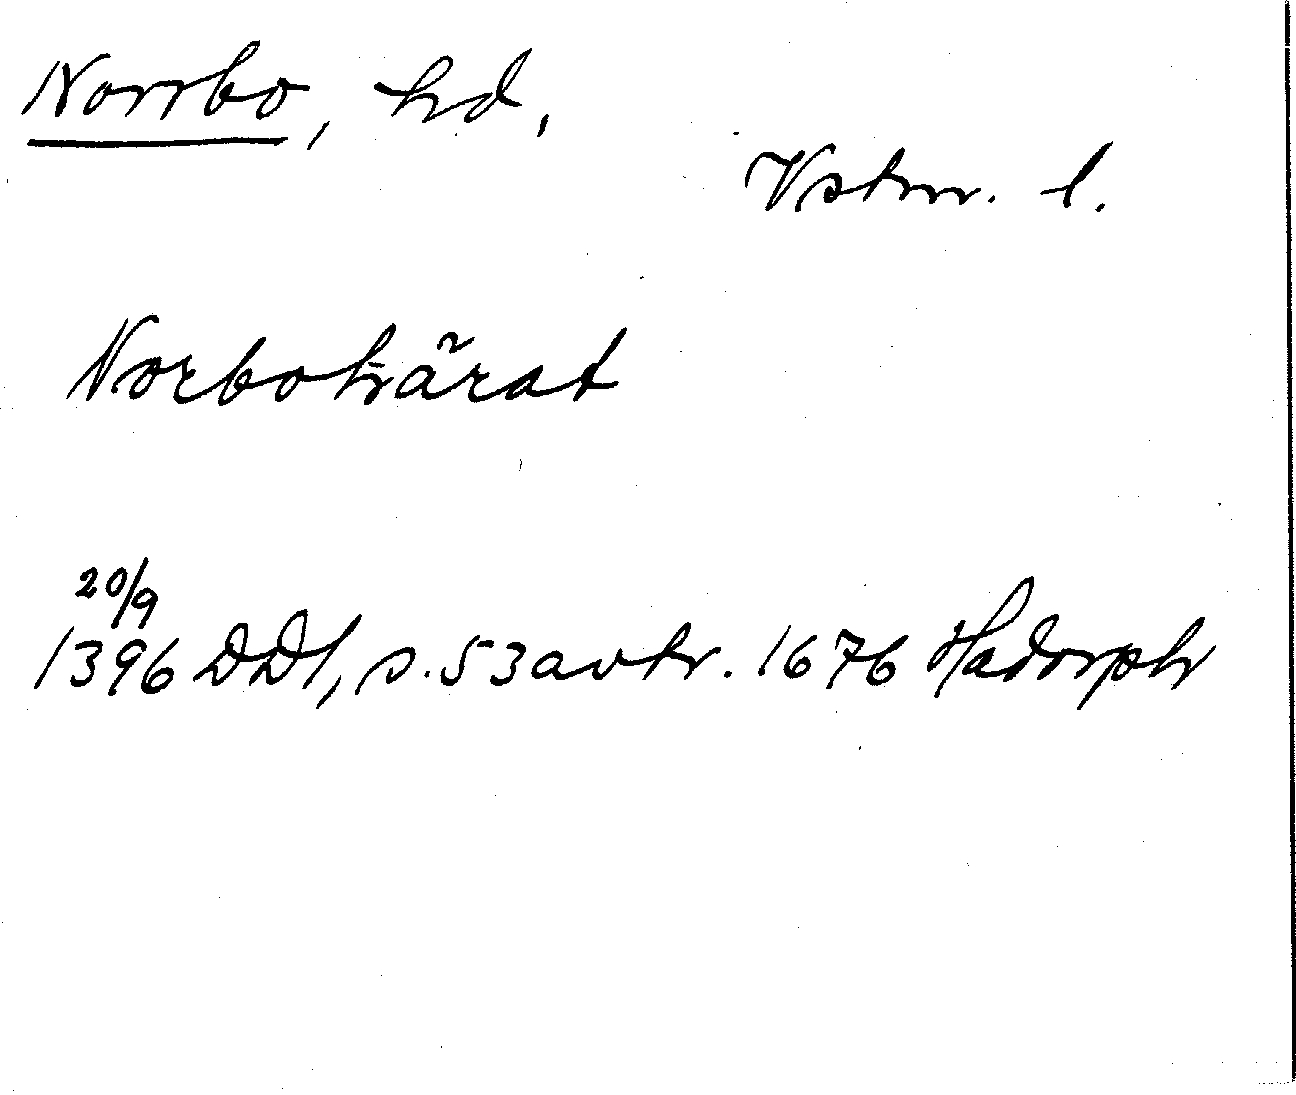 Norrbo, hd,
Vstm. l.
Norbohärat
20/9
1396 DD1, s. 53 avtr. 1676 Hadorph